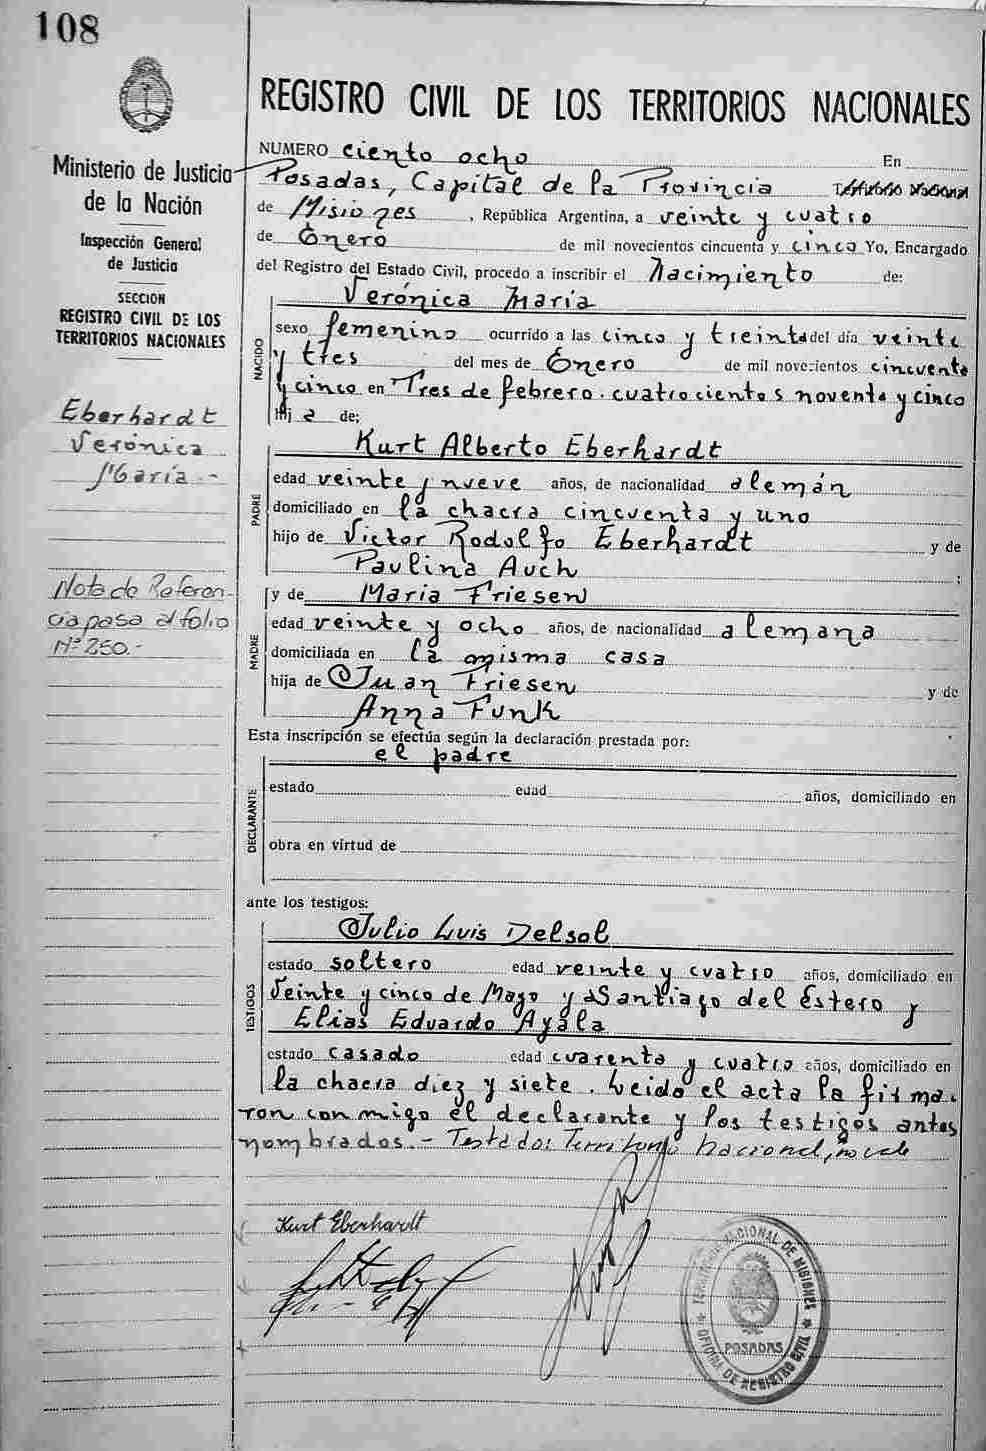 108
Ministerio de Justicia
de la Nación
Inspección General
de Justicia
SECCION
REGISTRO CIVIL DE LOS
TERRITORIOS NACIONALES
Eberhardt
Verónica
María.-
Nota de Referen-
cia pasa al folio
Nº 250.-
REGISTRO CIVIL DE LOS TERRITORIOS NACIONALES
NUMERO ciento ocho En
Posadas, Capital de la Provincia
de Misiones , República Argentina, a veinte y cuatro
de Enero de mil novecientos cincuenta y cinco Yo, Encargado
del Registro del Estado Civil, procedo a inscribir el Nacimiento de:
NACIDO
Verónica María
sexo femenino ocurrido a las cinco y treinta del día veinte
y tres del mes de Enero de mil novecientos cincuenta
y cinco en Tres de febrero. cuatrocientos noventa y cinco
hij a de:
PADRE
Kurt Alberto Eberhardt
edad veinte y nueve años, de nacionalidad alemán
domiciliado en la chacra cincuenta y uno
hijo de Victor Rodolfo Eberhardt y de
Paulina Auch ;
MADRE
y de Maria Friesen
edad veinte y ocho años, de nacionalidad alemana
domiciliada en la misma casa
hija de Juan Friesen y de
Anna Funk
Esta inscripción se efectúa según la declaración prestada por:
DECLARANTE
el padre
estado edad años, domiciliado en
obra en virtud de
ante los testigos:
TESTIGOS
Julio Luis Delsol
estado soltero edad veinte y cuatro años, domiciliado en
Veinte y cinco de Mayo y Santiago del Estero y
Elias Eduardo Ayala
estado casado edad cuarenta y cuatro años, domiciliado en
la chacra diez y siete. Leido el acta la firma-
ron conmigo el declarante y los testigos antes
nombrados.- Testado: Territorio Nacional, no vale
Kurt Eberhardt
TERRITORIO NACIONAL DE MISIONES
POSADAS
OFICINA DE REGISTRO CIVIL